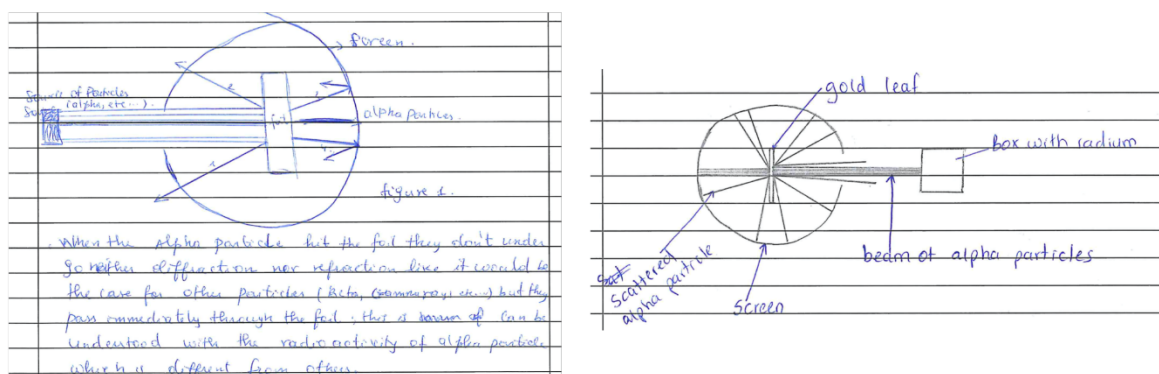 screen.
Source of Particles
(alpha, etc...).
foil
alpha particles.
figure 1.
When the Alpha particle hit the foil they don't under
go neither diffraction nor refraction like it would be
the case for other particles (beta, Gamma rays etc...) but they
pass immediately through the foil; this is can be
understood with the radioactivity of alpha particle
which is different from others.
gold leaf
Box with radium
beam of alpha particles
scattered
alpha particle
screen